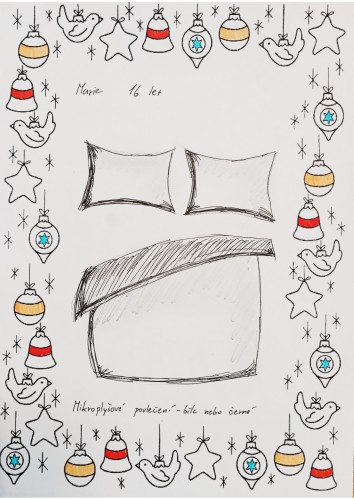 Marie 16 let
Mikroplyšové povlečení - bílé nebo černé